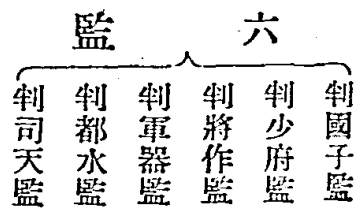 六監
判國子監
判少府監
判將作監
判軍器監
判都水監
判司天監